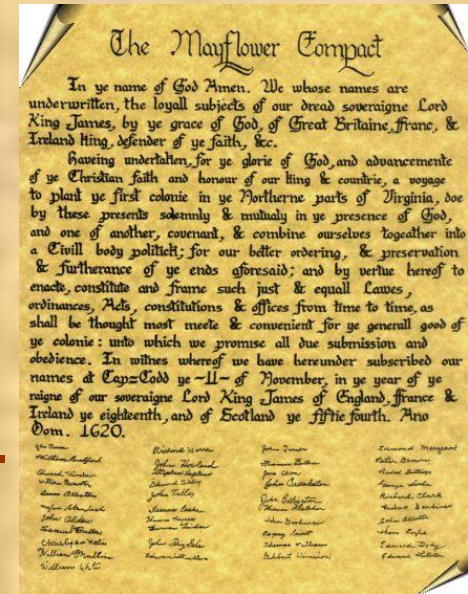 The Mayflower Compact
In ye name of God Amen. We whose names are
underwritten, the loyall subjects of our dread soveraigne Lord
King James, by ye grace of God, of Great Britaine, franc, &
Ireland king, defender of ye faith, &c.
Haveing undertaken, for ye glorie of God, and advancemente
of ye Christian faith and honour of our king & countrie, a voyage
to plant ye first colonie in ye Northerne parts of Virginia, doe
by these presents solemnly & mutualy in ye presence of God,
and one of another, covenant, & combine ourselves togeather into
a Civill body politick; for our better ordering, & preservation
& furtherance of ye ends aforesaid; and by vertue hereof to
enacte, constitute and frame such just & equall Lawes,
ordinances, Acts, constitutions & offices from time to time, as
shall be thought most meete & convenient for ye generall good of
ye colonie: unto which we promise all due submission and
obedience. In witnes whereof we have hereunder subscribed our
names at Cap=Codd ye ~11~ of November, in ye year of ye
raigne of our soveraigne Lord King James of England, france &
Ireland ye eighteenth, and of Scotland ye fiftie fourth. Ano
Dom. 1620.
William Bradford
Isaac Allerton
John Alden
Samuel Fuller
William Mullins
William White
Richard Warren
John Howland
Stephen Hopkins
John Tilley
John Turner
John Crackston
Peter Brown
Richard Clark
Edward Doty